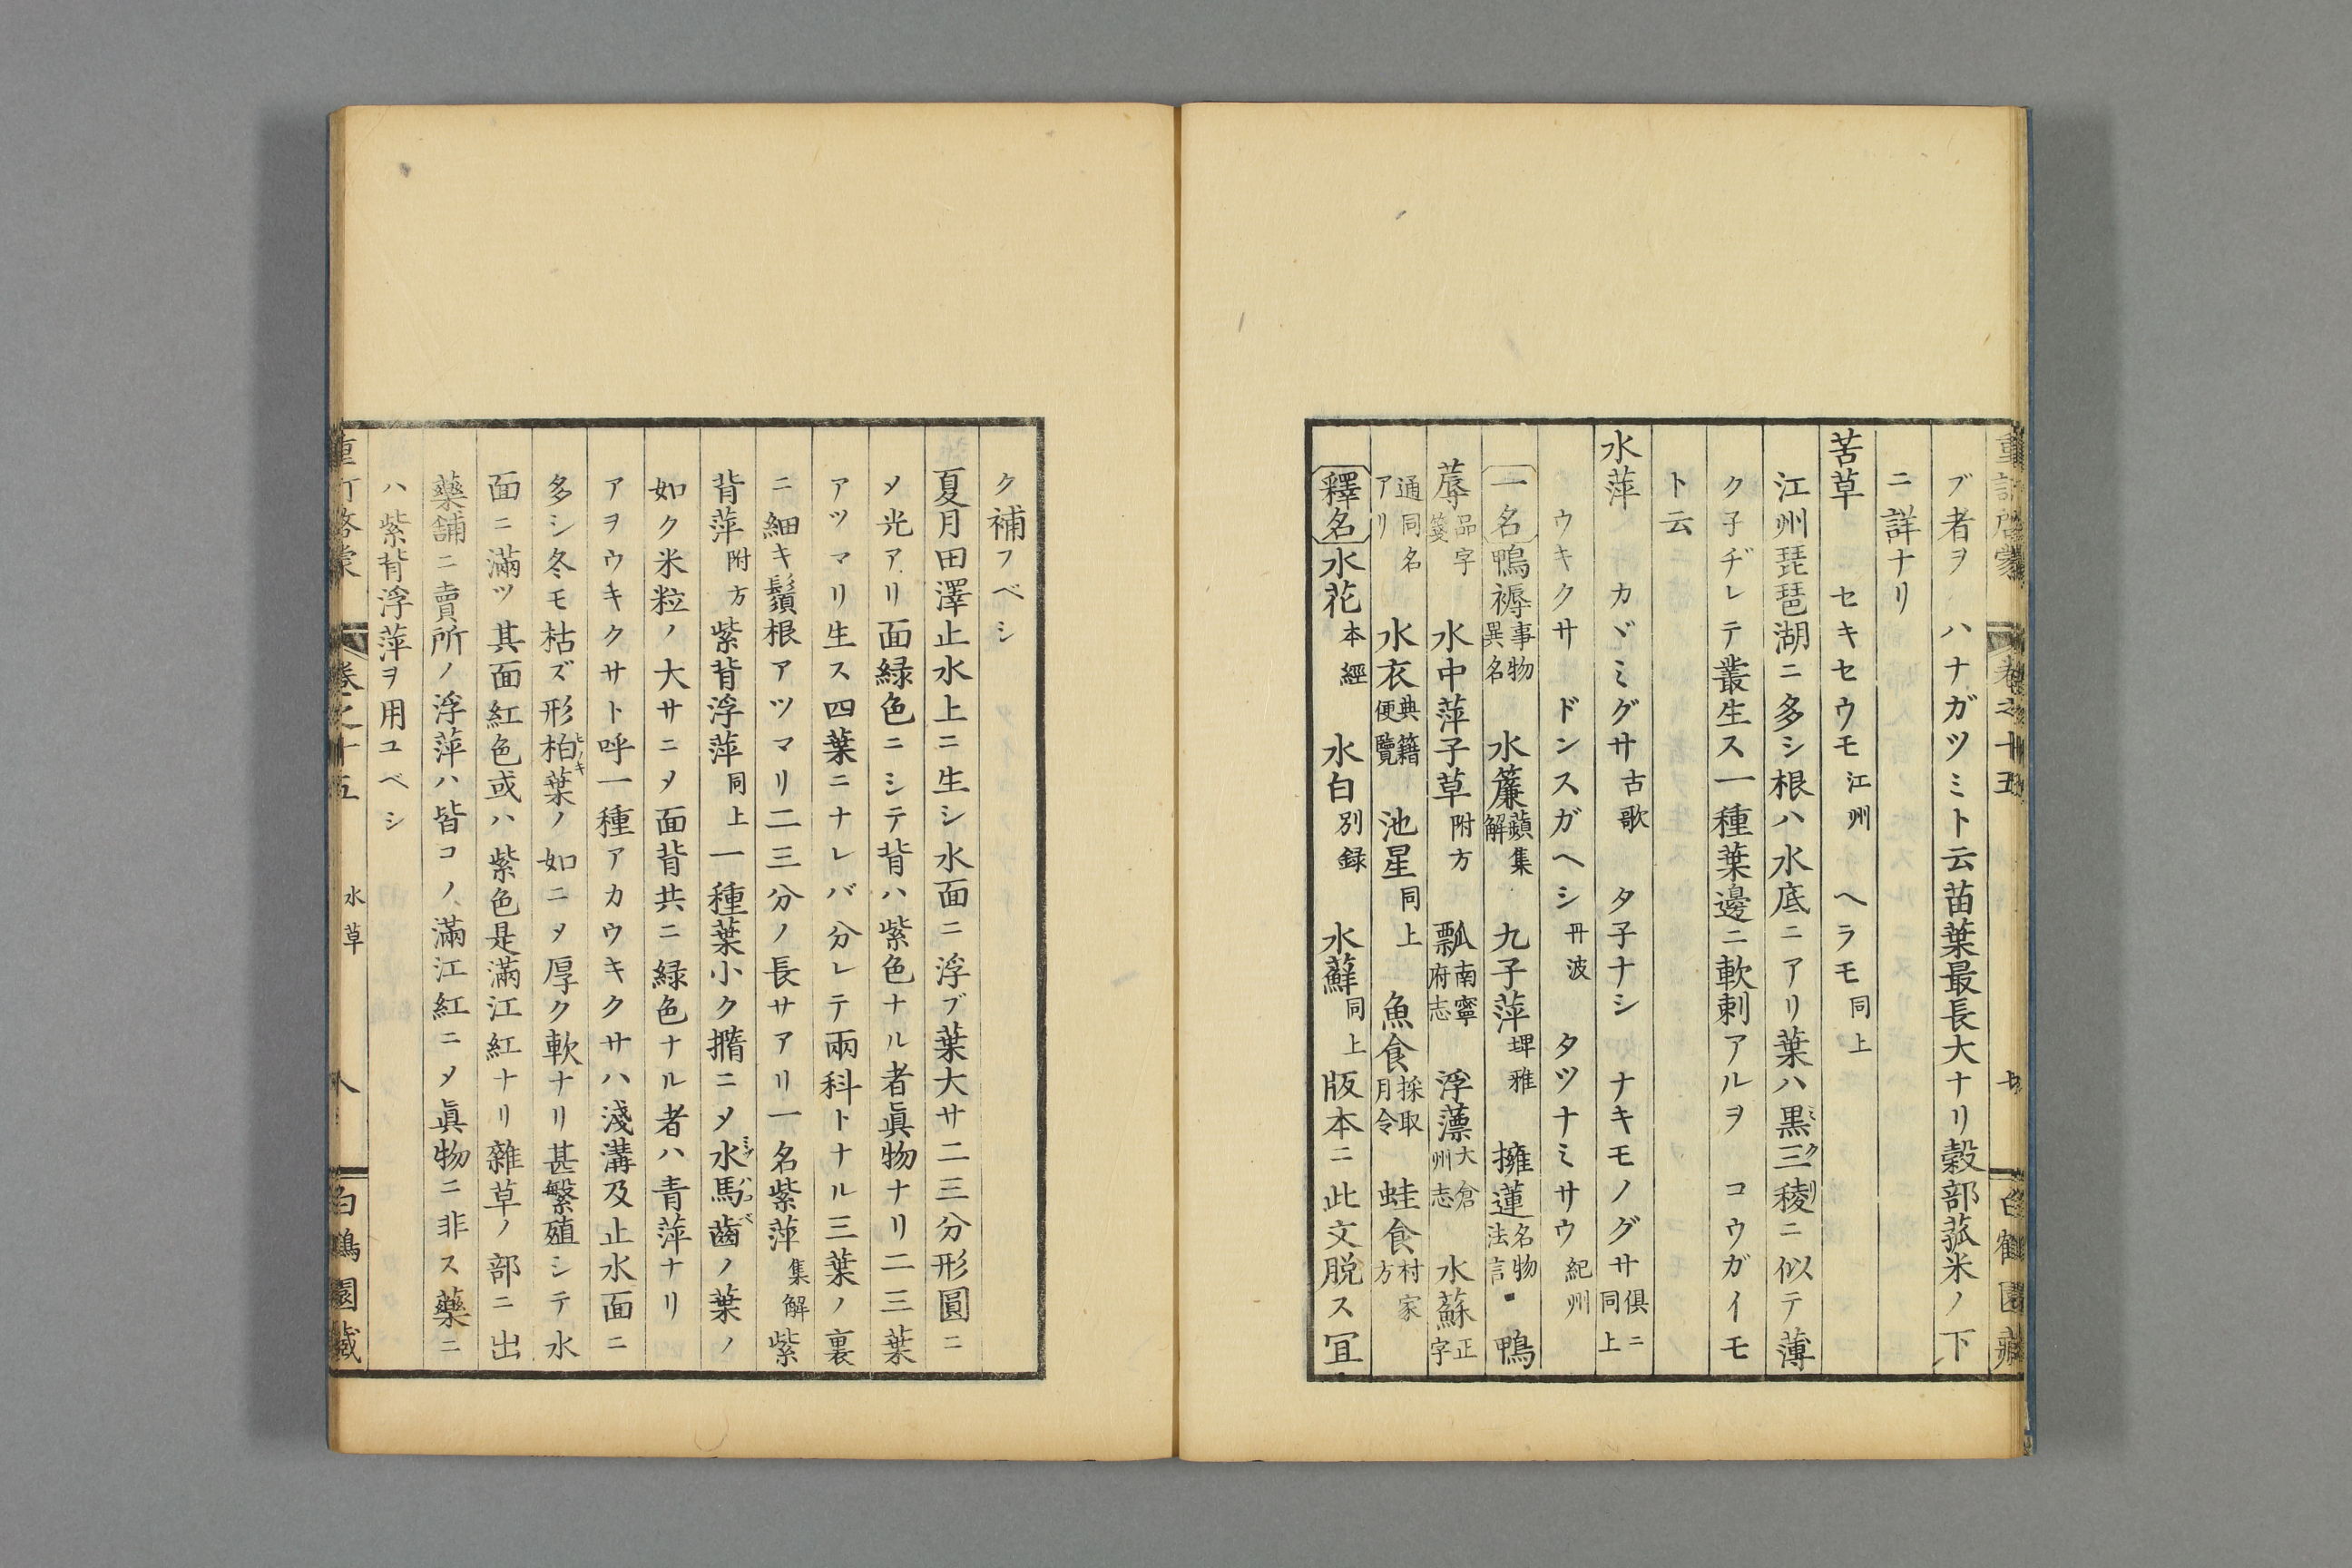 重訂啓蒙 卷之十五 七 白鶴園藏
ブ者ヲ ハナガツミト云苗葉最長大ナリ穀部菰米ノ下
ニ詳ナリ
苦草 セキセウモ江州 ヘラモ同上
江州琵琶湖ニ多シ根ハ水底ニアリ葉ハ黒三稜ニ似テ薄
ク子ヂレテ叢生ス一種葉邊ニ軟刺アルヲ コウガイモ
ト云
水萍 カヾミグサ古歌 タ子ナシ ナキモノグサ俱ニ同上
ウキクサ ドンスガヘシ丹波 タツナミサウ紀州
一名鴨褥事物異名 水簾蘋集解 九子萍埤雅 擁蓮名物法言 鴨
蓐品字箋 水中萍子草附方 瓢南寧府志 浮薸大倉州志 水蘇正字
通同名アリ 水衣典籍便覽 池星同上 魚食採取月令 蛙食村家方
釋名水花本經 水白別録 水蘚同上版本ニ此文脱ス冝
ク補フベシ
夏月田澤止水上ニ生シ水面ニ浮ブ葉大サ二三分形圓ニ
〆光アリ面緑色ニシテ背ハ紫色ナル者眞物ナリ二三葉
アツマリ生ス四葉ニナレバ分レテ兩科トナル三葉ノ裏
ニ細キ鬚根アツマリ二三分ノ長サアリ一名紫萍集解紫
背萍附方紫背浮萍同上一種葉小ク撱ニ〆水馬齒ノ葉ノ
如ク米粒ノ大サニ〆面背共ニ緑色ナル者ハ青萍ナリ
アヲウキクサト呼一種アカウキクサハ淺溝及止水面ニ
多シ冬モ枯ズ形柏葉ノ如ニ〆厚ク軟ナリ甚繁殖シテ水
面ニ滿ツ其面紅色或ハ紫色是滿江紅ナリ雜草ノ部ニ出
藥舖ニ賣所ノ浮萍ハ皆コノ滿江紅ニ〆眞物ニ非ス藥ニ
ハ紫背浮萍ヲ用ユベシ
重訂啓蒙 卷之十五 水草 八 白鶴園藏